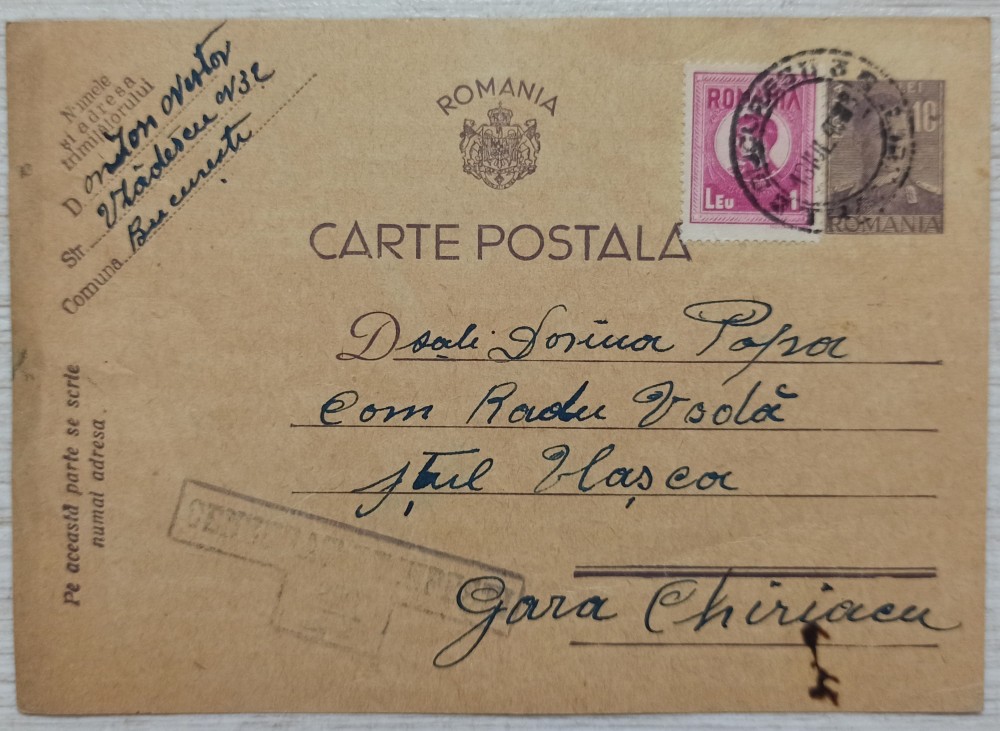 Numele
și adresa
trimițătorului
D Ion Nestor
Str. Vlădescu N32
Comuna București
ROMANIA
CARTE POSTALA
ROMANIA
LEU 1
LEI 10
ROMANIA
BUCUREȘTI 3
Dsale Dorina Popa
Com Radu Vodă
Jțul Vlașca
Gara Chiriacu
Pe această parte se scrie
numai adresa.